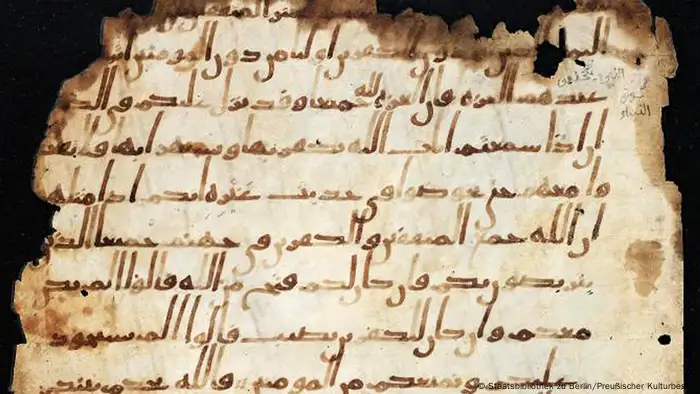 المنفقين
الكفرين اوليا من دون المومنين
عندهم العزه فان العزه لله جميعا وقد نزل عليكم في الكتـ
ان اذا سمعتم ايت الله يكفر بها ويستهزا بها فلا تقعد
وا معهم حتى يخوضوا في حديث غيره انكم اذا مثلهم
ان الله جمع المنفقين والكفرين في جهنم جميعا الذين
يتربصون بكم فان كان لكم فتح من الله قالوا الم نكن
معكم وان كان للكفرين نصيب قالوا الم نستحوذ
عليكم ونمنعكم من المومنين فالله يحكم بينكم
© Staatsbibliothek zu Berlin/Preußischer Kulturbes